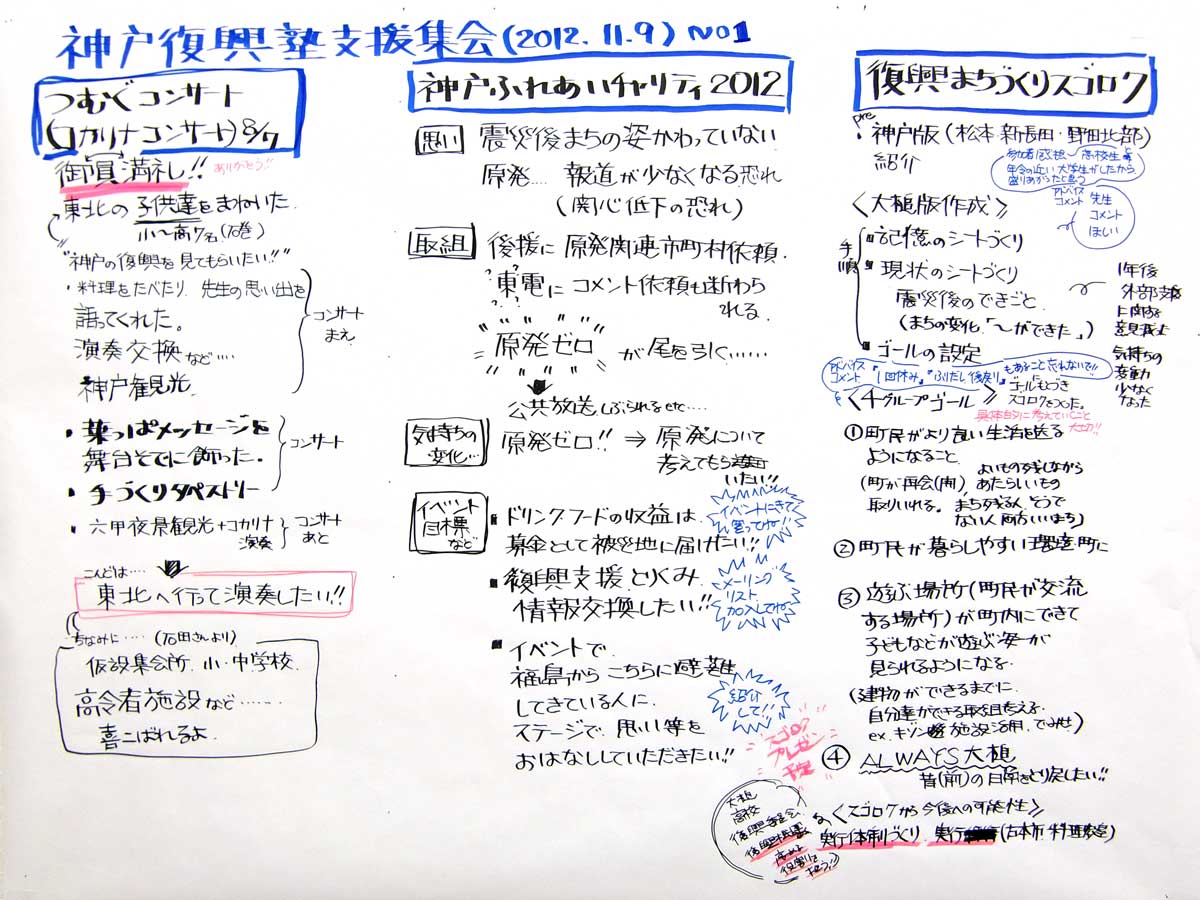 神戸復興塾支援集会(2012.11.9) No1
つむぐコンサート
(コカリナコンサート)8/7
御員満礼!! ありがとう!!
東北の子供達をまねいた。
小〜高7名(石巻)
"神戸の復興を見てもらいたい!!"
・料理をたべたり、先生の思い出を
語ってくれた。
演奏交換など‥‥
神戸観光。
コンサート
まえ
・葉っぱメッセージを
舞台そでに飾った。
・手づくりタペストリー
コンサート
・六甲夜景観光+コカリナ
演奏
コンサート
あと
こんどは‥‥
東北へ行って演奏したい!!
ちなみに‥‥(石田さんより)
仮設集会所、小・中学校、
高令者施設など‥‥‥
喜こばれるよ。
神戸ふれあいチャリティ2012
思い
震災後まちの姿かわっていない
原発‥‥ 報道が少なくなる恐れ
(関心低下の恐れ)
取組
後援に原発関連市町村依頼。
東電にコメント依頼も断わら
れる。
原発ゼロ が尾を引く‥‥‥
公共放送しぶられるetc‥‥
気持ちの
変化‥
原発ゼロ!! ⇒ 原発について
考えてもら
いたい!!
イベント
目標
など
ドリンクフードの収益は、
募金として被災地に届けたい!!
イベントにきて
買ってね!!
復興支援とりくみ
情報交換したい!!
メーリング
リスト
加入してね
イベントで、
福島からこちらに避難
してきている人に、
ステージで、思い等を
おはなししていただきたい!!
紹介
して!!
スゴロク
プレゼン
予定
復興まちづくりスゴロク
pre
・神戸版(松本・新長田・野田北部)
紹介
参加者感想〜高校生
年令の近い大学生がしたから
盛りあがったと思う
アドバイス
コメント
先生
コメント
ほしい
《大槌版作成》
手順
記憶のシートづくり
現状のシートづくり
震災後のできごと
(まちの変化、「〜ができた」)
1年後
外部支援
に関する
意見減少
気持ちの
変動
少なく
なった
ゴールの設定
アドバイス
コメント
「1回休み」「ふりだし、後戻り」もあること忘れないで!!
ゴールにもとづき
スゴロクをつくった。
《4グループゴール》
具体的に考えていくこと
大切!!
①町民がより良い生活を送る
ようになること
(町が再会(開) よいもの残しながら
あたらしいもの
取りいれる。
②町民が暮らしやすい環境町に
③遊ぶ場所(町民が交流
する場所)が町内にできて
子どもなどが遊ぶ姿が
見られるようになる。
(建物ができるまでに、
自分達ができる取組考える。
④ALWAYS大槌
昔(前)の日常をとり戻したい!!
《スゴロクから今後への可能性》
実行体制づくり
大槌
高校